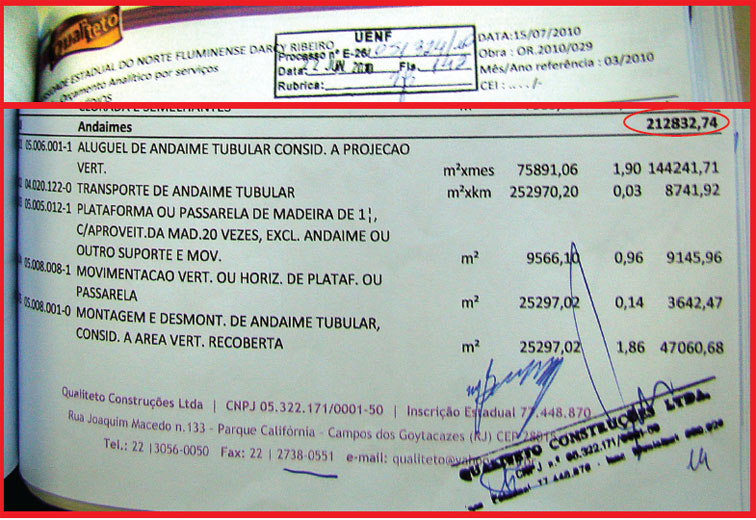 Qualiteto
UENF
DADE ESTADUAL DO NORTE FLUMINENSE DARCY RIBEIRO
Processo nº E-26/051324/10
Data: 22 JUN 2010 Fls. 142
Rubrica:
Orçamento Analítico por serviços
DATA:15/07/2010
Obra : OR.2010/029
Mês/Ano referência : 03/2010
CEI : ...../-
E SEMELHANTES m²
Andaimes 212832,74
05.006.001-1 ALUGUEL DE ANDAIME TUBULAR CONSID. A PROJECAO
VERT. m²xmes 75891,06 1,90 144241,71
04.020.122-0 TRANSPORTE DE ANDAIME TUBULAR m²xkm 252970,20 0,03 8741,92
05.005.012-1 PLATAFORMA OU PASSARELA DE MADEIRA DE 1¦,
C/APROVEIT.DA MAD.20 VEZES, EXCL. ANDAIME OU
OUTRO SUPORTE E MOV. m² 9566,10 0,96 9145,96
05.008.008-1 MOVIMENTACAO VERT. OU HORIZ. DE PLATAF. OU
PASSARELA m² 25297,02 0,14 3642,47
05.008.001-0 MONTAGEM E DESMONT. DE ANDAIME TUBULAR,
CONSID. A AREA VERT. RECOBERTA m² 25297,02 1,86 47060,68
Qualiteto Construções Ltda | CNPJ 05.322.171/0001-50 | Inscrição Estadual 77.448.870
Rua Joaquim Macedo n.133 - Parque Califórnia - Campos dos Goytacazes (RJ) CEP 28015
Tel.: 22 |3056-0050 Fax: 22 | 2738-0551 e-mail: qualiteto@yahoo
QUALITETO CONSTRUÇÕES LTDA.
CNPJ n.º 05.322.171/0001-50
77.448.870